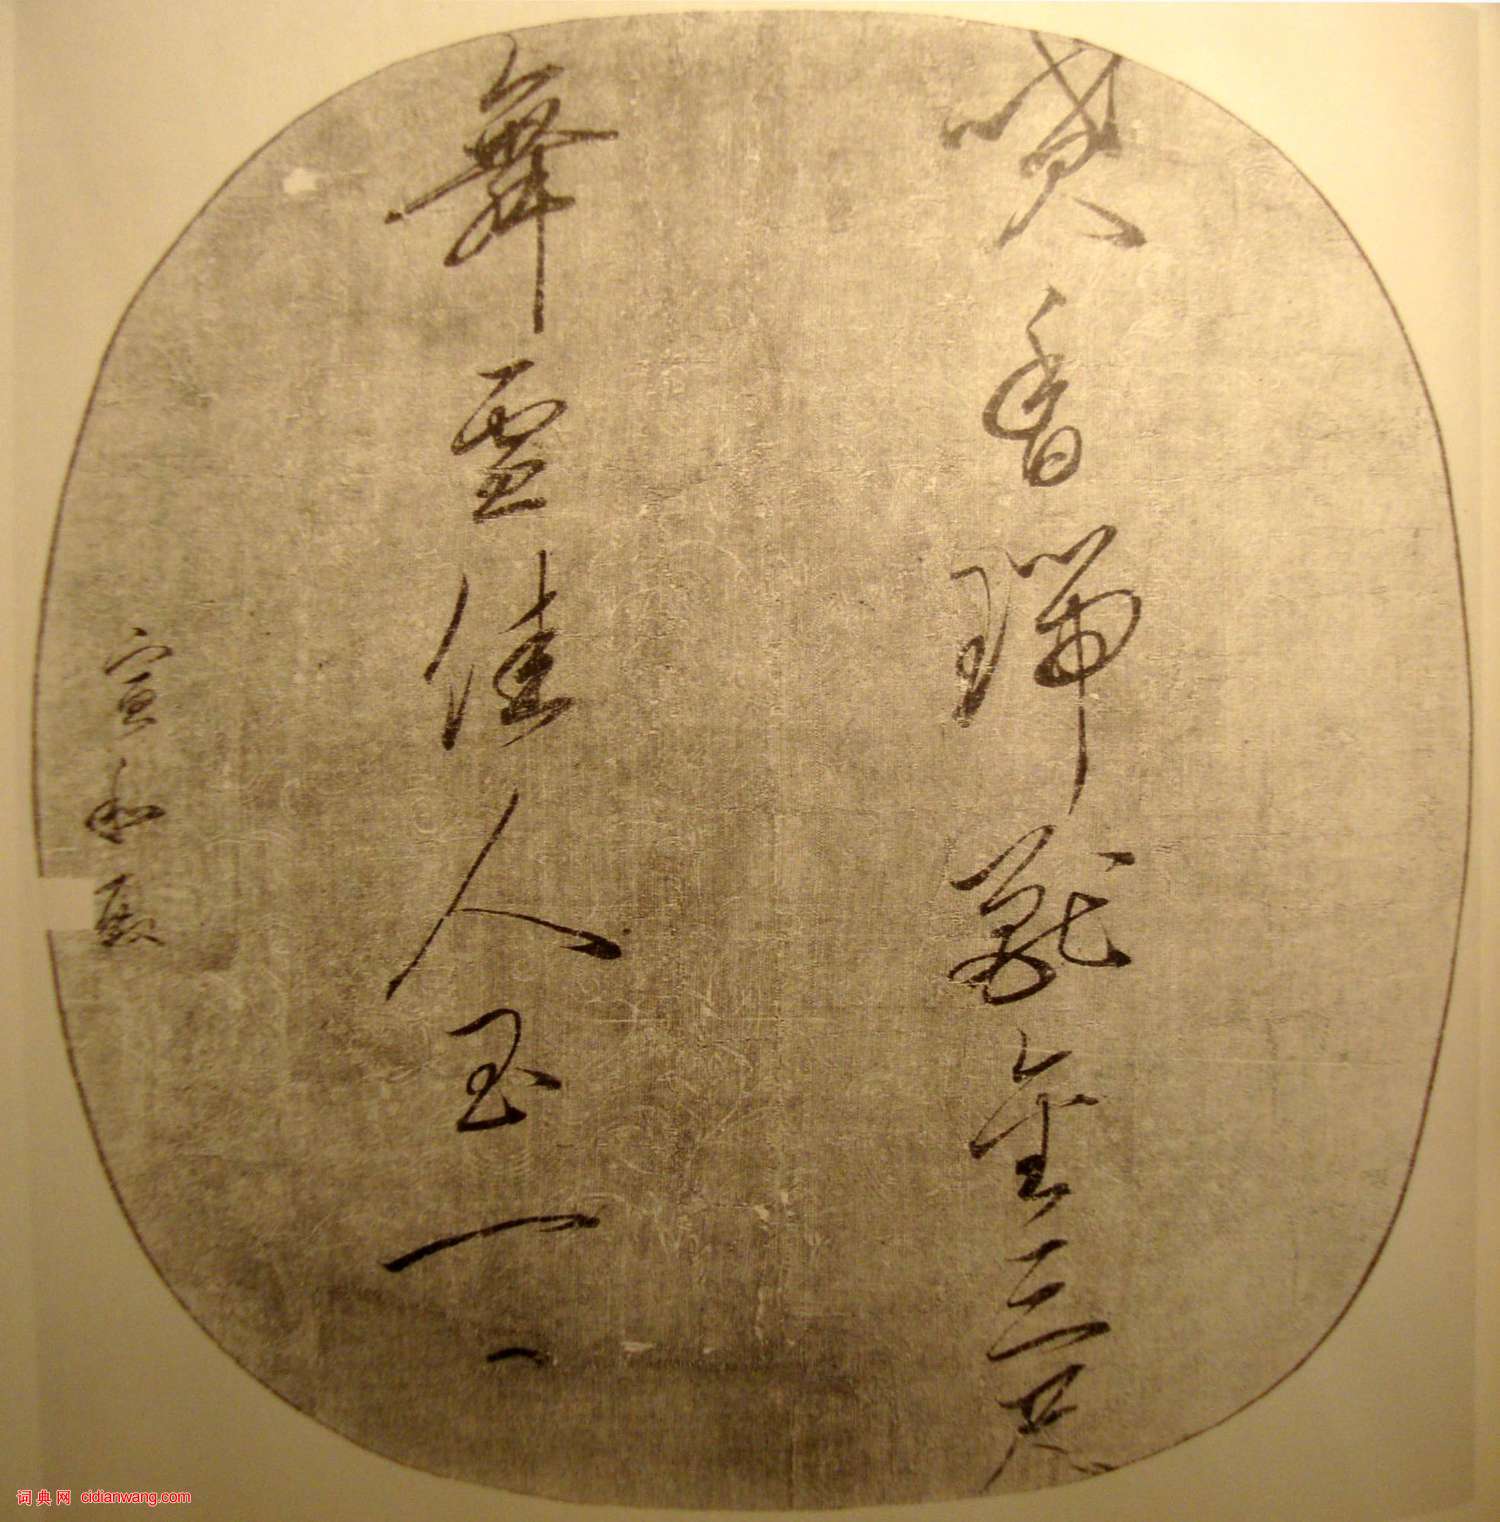 喷香瑞兽金三尺
舞雪佳人玉一一
宣和殿
词典网 cidianwang.com